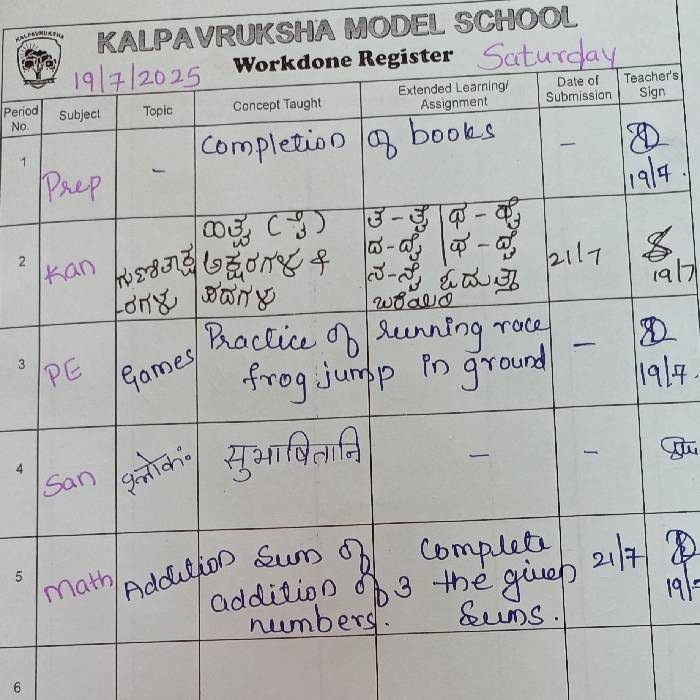 KALPAVRUKSHA
KALPAVRUKSHA MODEL SCHOOL
Workdone Register
19/7/2025 Saturday
Period No. Subject Topic Concept Taught Extended Learning/ Assignment Date of Submission Teacher's Sign
1 Prep - Completion of books - 19/7.
2 Kan ಗುಣಿತಾಕ್ಷ
-ರಗಳು
ಐತ್ವ (ೈ)
ಅಕ್ಷರಗಳು &
ಪದಗಳು
ತ-ತೈ | ಥ-ಥೈ
ದ-ದೈ | ಧ-ಧೈ
ನ-ನೈ ಓದುತ್ತಾ
ಬರೆಯಿರಿ
21/7 19/7
3 PE Games Practice of running race
frog jump in ground - 19/7.
4 San श्लोकं सुभाषितानि - -
5 Math Addition Sum of
addition of 3
numbers.
Complete
the given
sums.
21/7
6